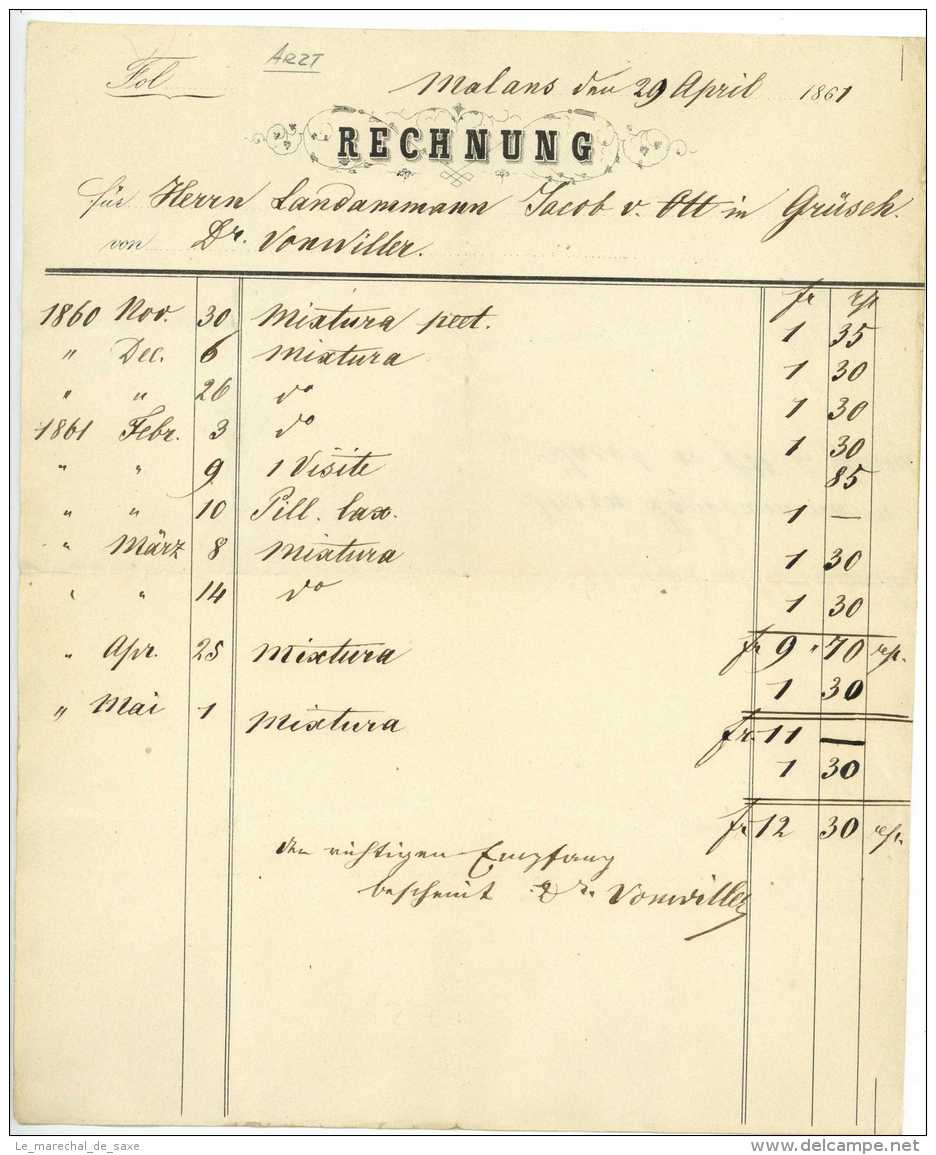 Fol
ARZT
Malans den 29 April 1861
RECHNUNG
für Herrn Landammann Jacob v. Ott in Grüsch.
von Dr. Vonwiller.
fr rp
1860 Nov. 30 Mixtura pect. 1 35
" Dec. 6 Mixtura 1 30
" " 26 do 1 30
1861 Febr. 3 do 1 30
" " 9 1 Visite 85
" " 10 Pill. lax. 1 —
" März 8 Mixtura 1 30
" " 14 do 1 30
fr 9 " 70 rp.
" Apr. 25 Mixtura 1 30
fr. 11 —
" Mai 1 Mixtura 1 30
fr 12 30 rp.
den richtigen Empfang
bescheint Dr. Vonwiller
Le_marechal_de_saxe
www.delcampe.net